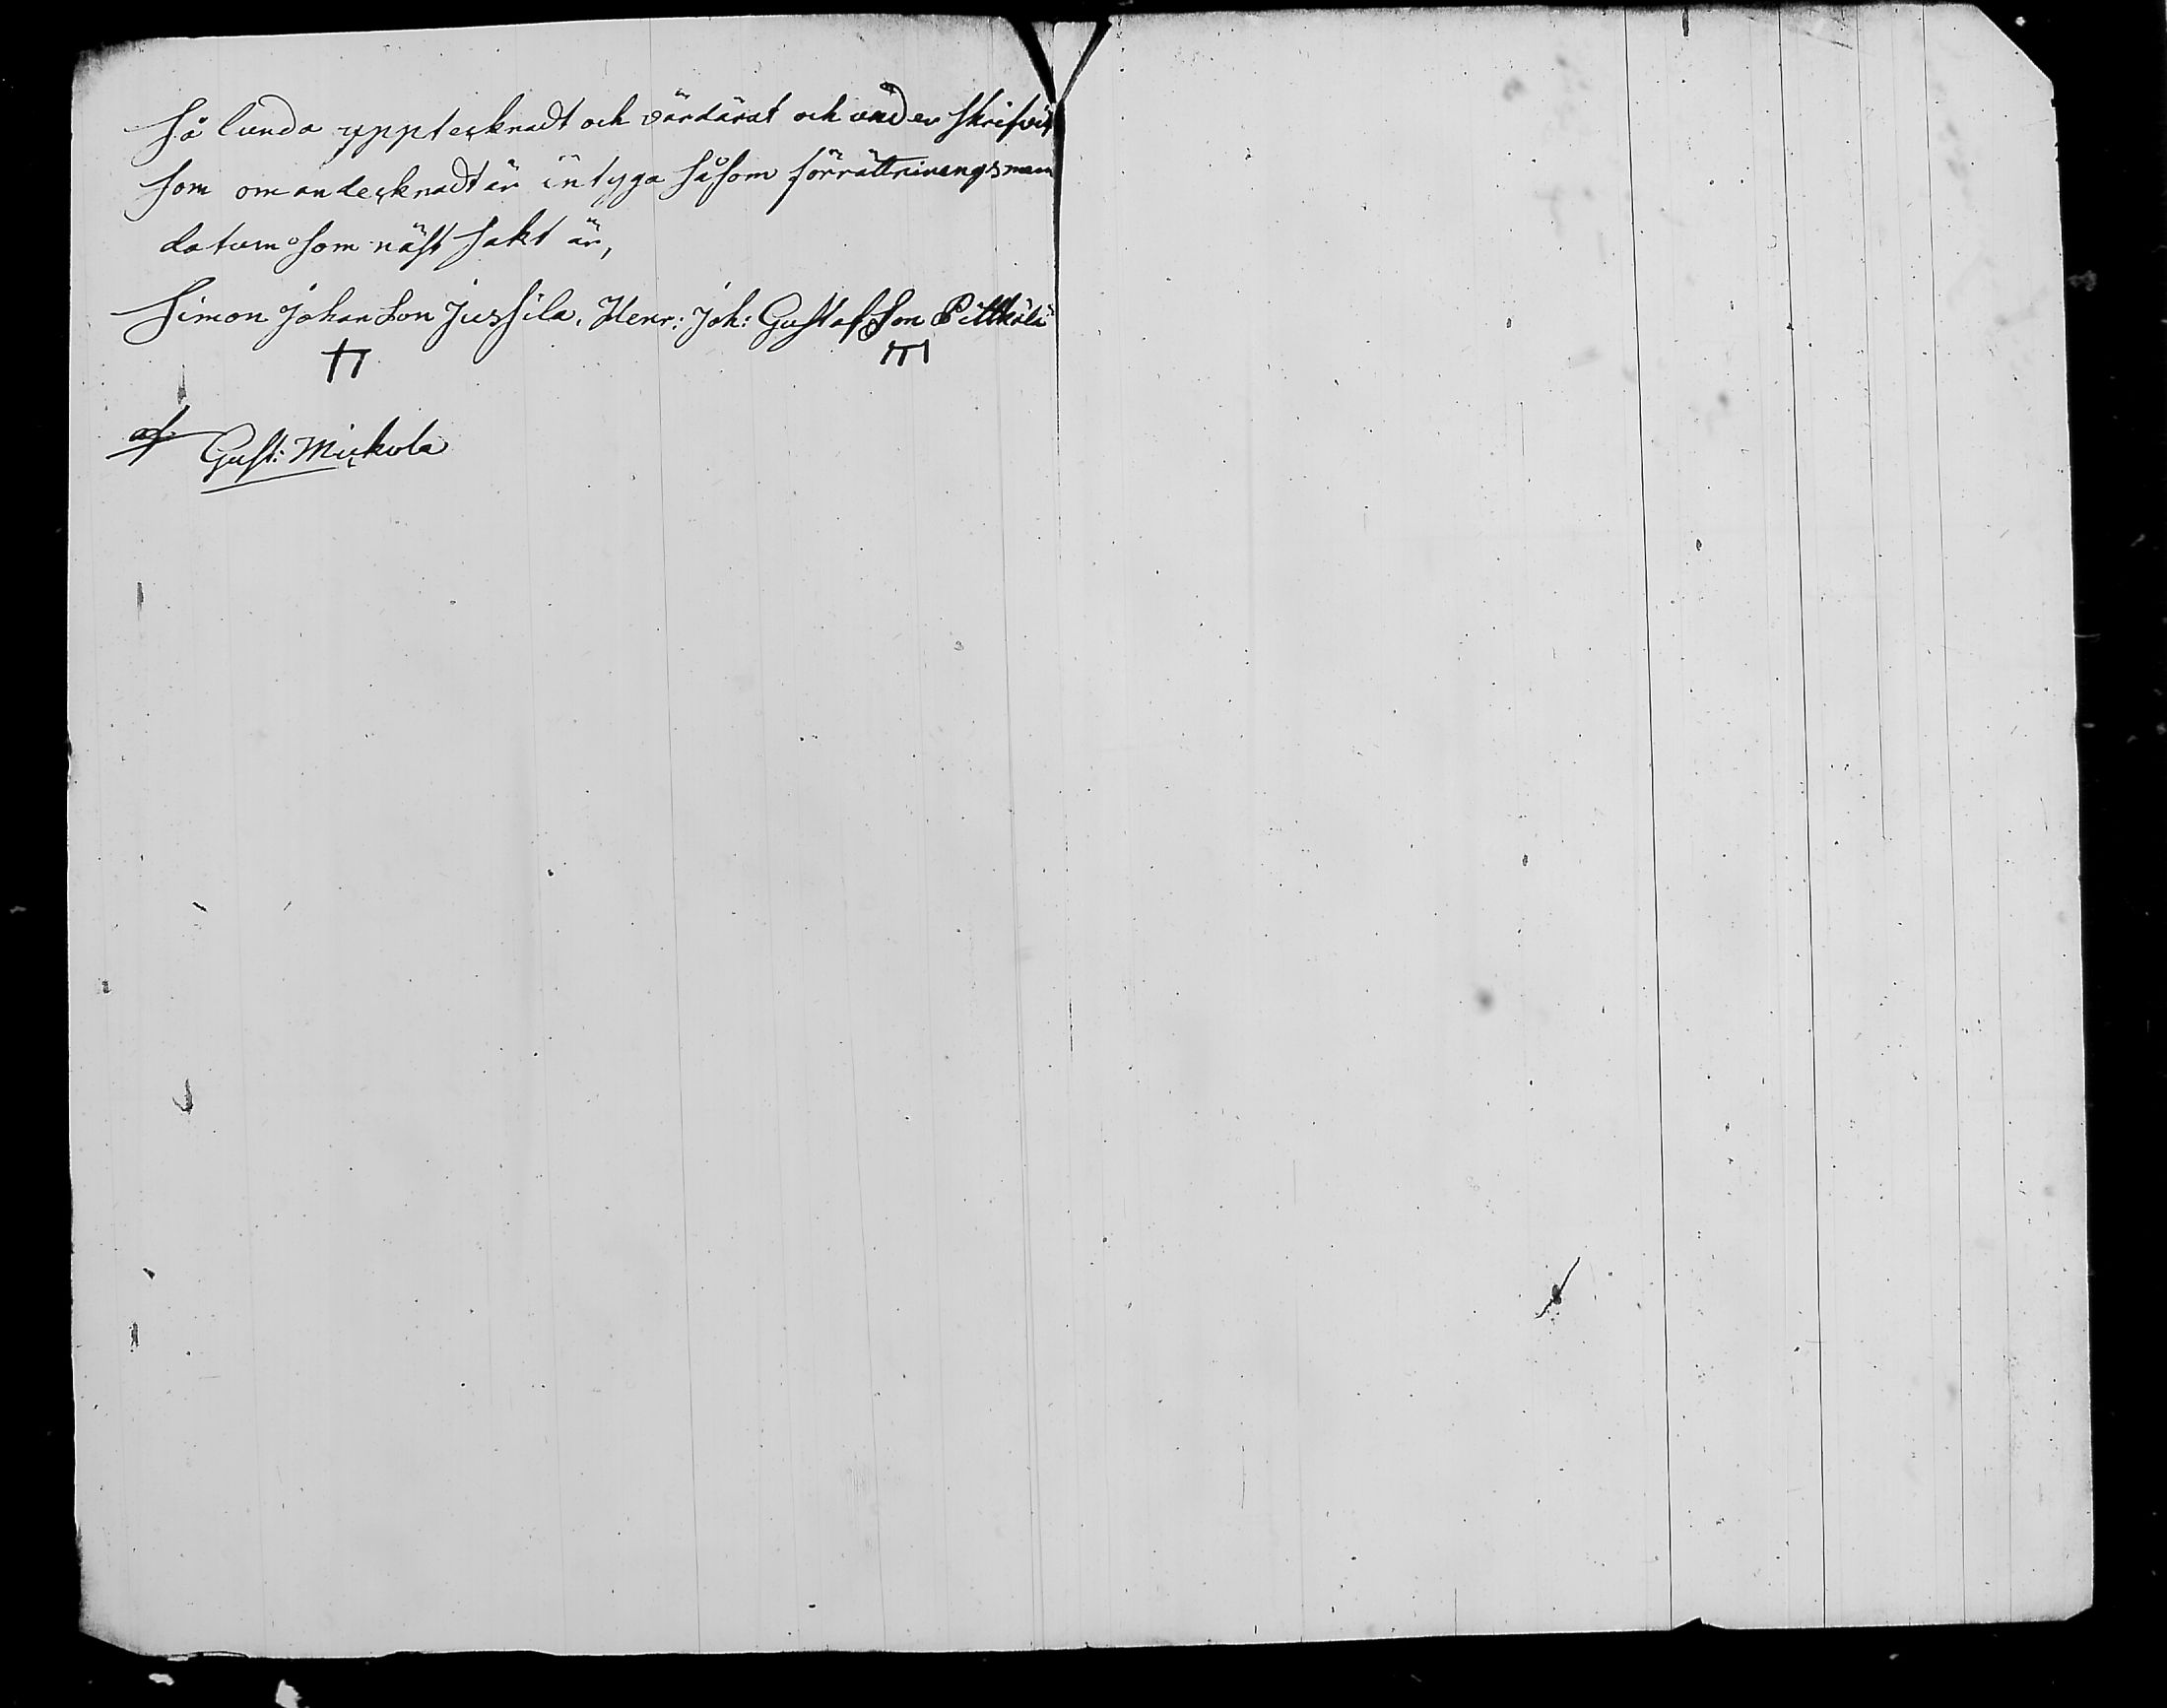 Så lunda upptecknadt och värdärat och under skrifvit
som om andecknadt är intyga såsom förrättninengsmen
datum som näst sakt är,
Simon Johan Son Jussila. Henr: Joh: Gustaf Son Pittkälä
af Gust: Mickola